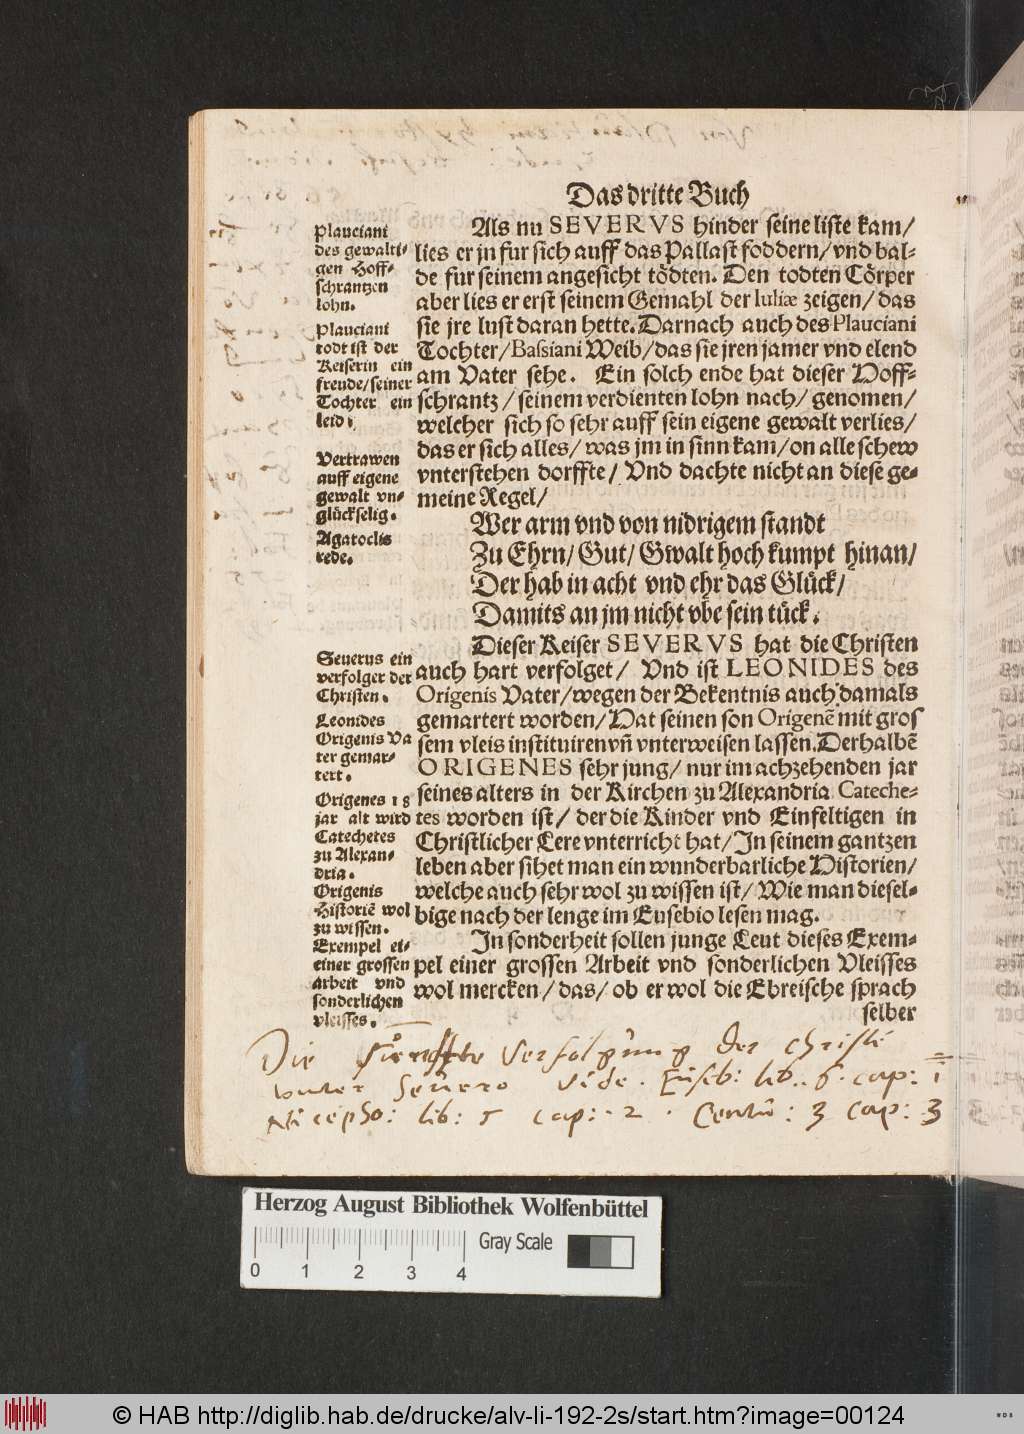 Das dritte Buch
Als nu SEVERVS hinder seine liste kam/
lies er jn fur sich auff das Pallast foddern/ vnd bal-
de fur seinem angesicht tödten. Den todten Cörper
aber lies er erst seinem Gemahl der Iuliæ zeigen/ das
sie jre lust daran hette. Darnach auch des Plauciani
Tochter/ Bassiani Weib/ das sie jren jamer vnd elend
am Vater sehe. Ein solch ende hat dieser Hoff-
schrantz/ seinem verdienten lohn nach/ genomen/
welcher sich so sehr auff sein eigene gewalt verlies/
das er sich alles/ was jm in sinn kam/ on alle schew
vnterstehen dorffte/ Vnd dachte nicht an diese ge-
meine Regel/
Wer arm vnd von nidrigem standt
Zu Ehrn/ Gut/ Gwalt hoch kumpt hinan/
Der hab in acht vnd ehr das Glück/
Damits an jm nicht vbe sein tück.
Dieser Keiser SEVERVS hat die Christen
auch hart verfolget/ Vnd ist LEONIDES des
Origenis Vater/ wegen der Bekentnis auch damals
gemartert worden/ Hat seinen son Origenē mit gros
sem vleis instituiren vñ vnterweisen lassen. Derhalbē
ORIGENES sehr jung/ nur im achzehenden jar
seines alters in der Kirchen zu Alexandria Cateche-
tes worden ist/ der die Kinder vnd Einfeltigen in
Christlicher Lere vnterricht hat/ In seinem gantzen
leben aber sihet man ein wunderbarliche Historien/
welche auch sehr wol zu wissen ist/ Wie man diesel-
bige nach der lenge im Eusebio lesen mag.
In sonderheit sollen junge Leut dieses Exem-
pel einer grossen Arbeit vnd sonderlichen Vleisses
wol mercken/ das/ ob er wol die Ebreische sprach
selber
Plauciani
des gewalti-
gen Hoff-
schrantzen
lohn.
Plauciani
todt ist der
Keiserin ein
freude/ seiner
Tochter ein
leid.
Vertrawen
auff eigene
gewalt vn-
glückselig.
Agatoclis
rede.
Seuerus ein
verfolger der
Christen.
Leonides
Origenis Va
ter gemar-
tert.
Origenes 18
jar alt wird
Catechetes
zu Alexan-
dria.
Origenis
Historiē wol
zu wissen.
Exempel ei-
einer grossen
arbeit vnd
sonderlichen
vleisses.
Die Verfolgung der Christē
vnter Seuero vide. Euseb: lib. 6. cap: 1
Nicepho: lib: 5 cap: 2. Centu: 3 cap: 3
Herzog August Bibliothek Wolfenbüttel
0 1 2 3 4 Gray Scale
© HAB http://diglib.hab.de/drucke/alv-li-192-2s/start.htm?image=00124